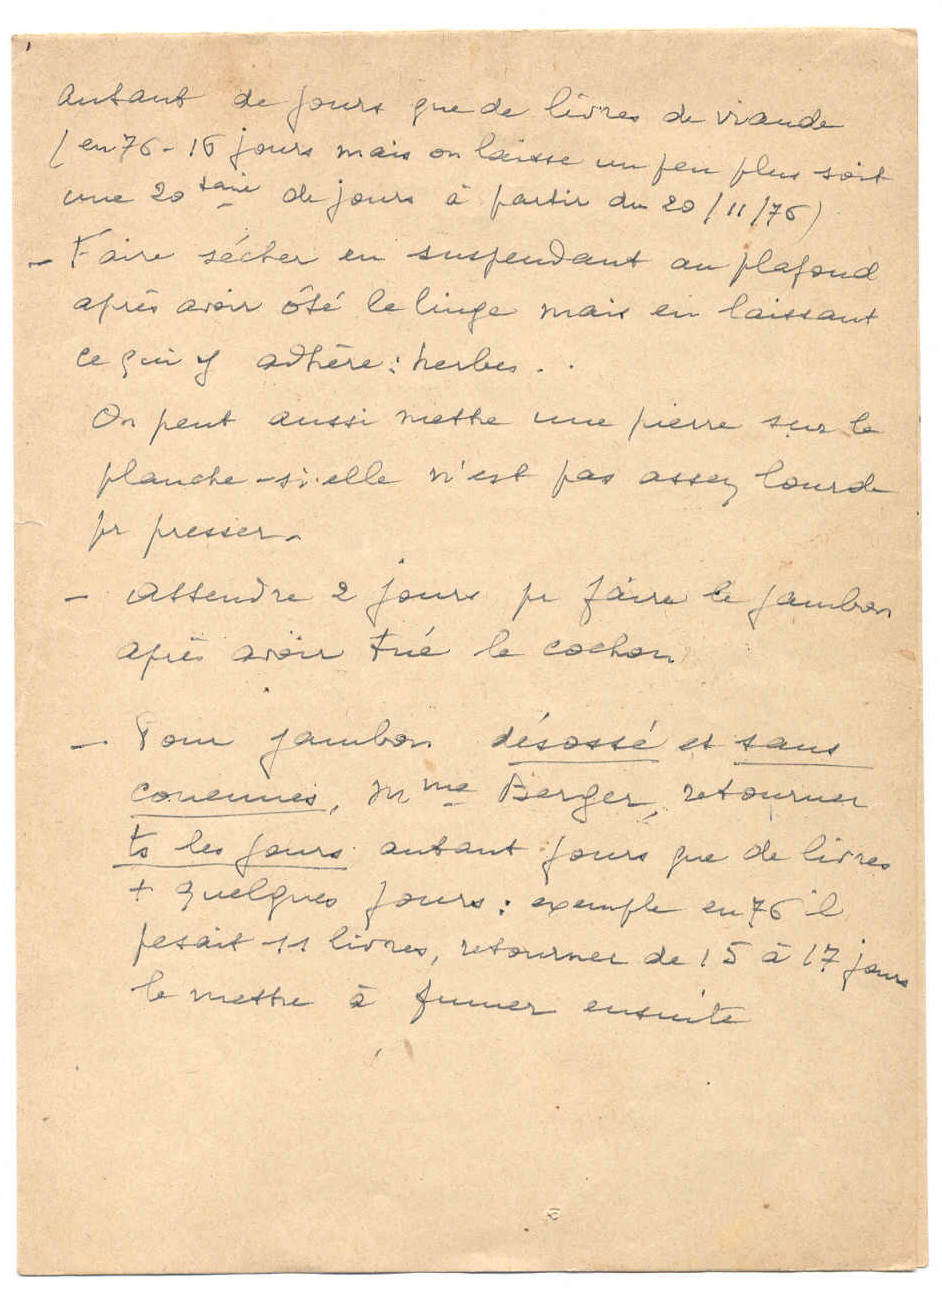 autant de jours que de livres de viande
(en 76 - 16 jours mais on laisse un peu plus soit
une 20taine de jours à partir du 20/11/76)
- Faire sécher en suspendant au plafond
après avoir ôté le linge mais en laissant
ce qui y adhère : herbes . .
On peut aussi mettre une pierre sur la
planche - si elle n'est pas assez lourde
pr presser.
- Attendre 2 jours pr faire le jambon
après avoir tué le cochon
- Pour jambon désossé et sans
couennes, Mme Berger, retourner
ts les jours autant jours que de livres
+ quelques jours : exemple en 76 il
pesait 11 livres, retourner de 15 à 17 jours
le mettre à fumer ensuite